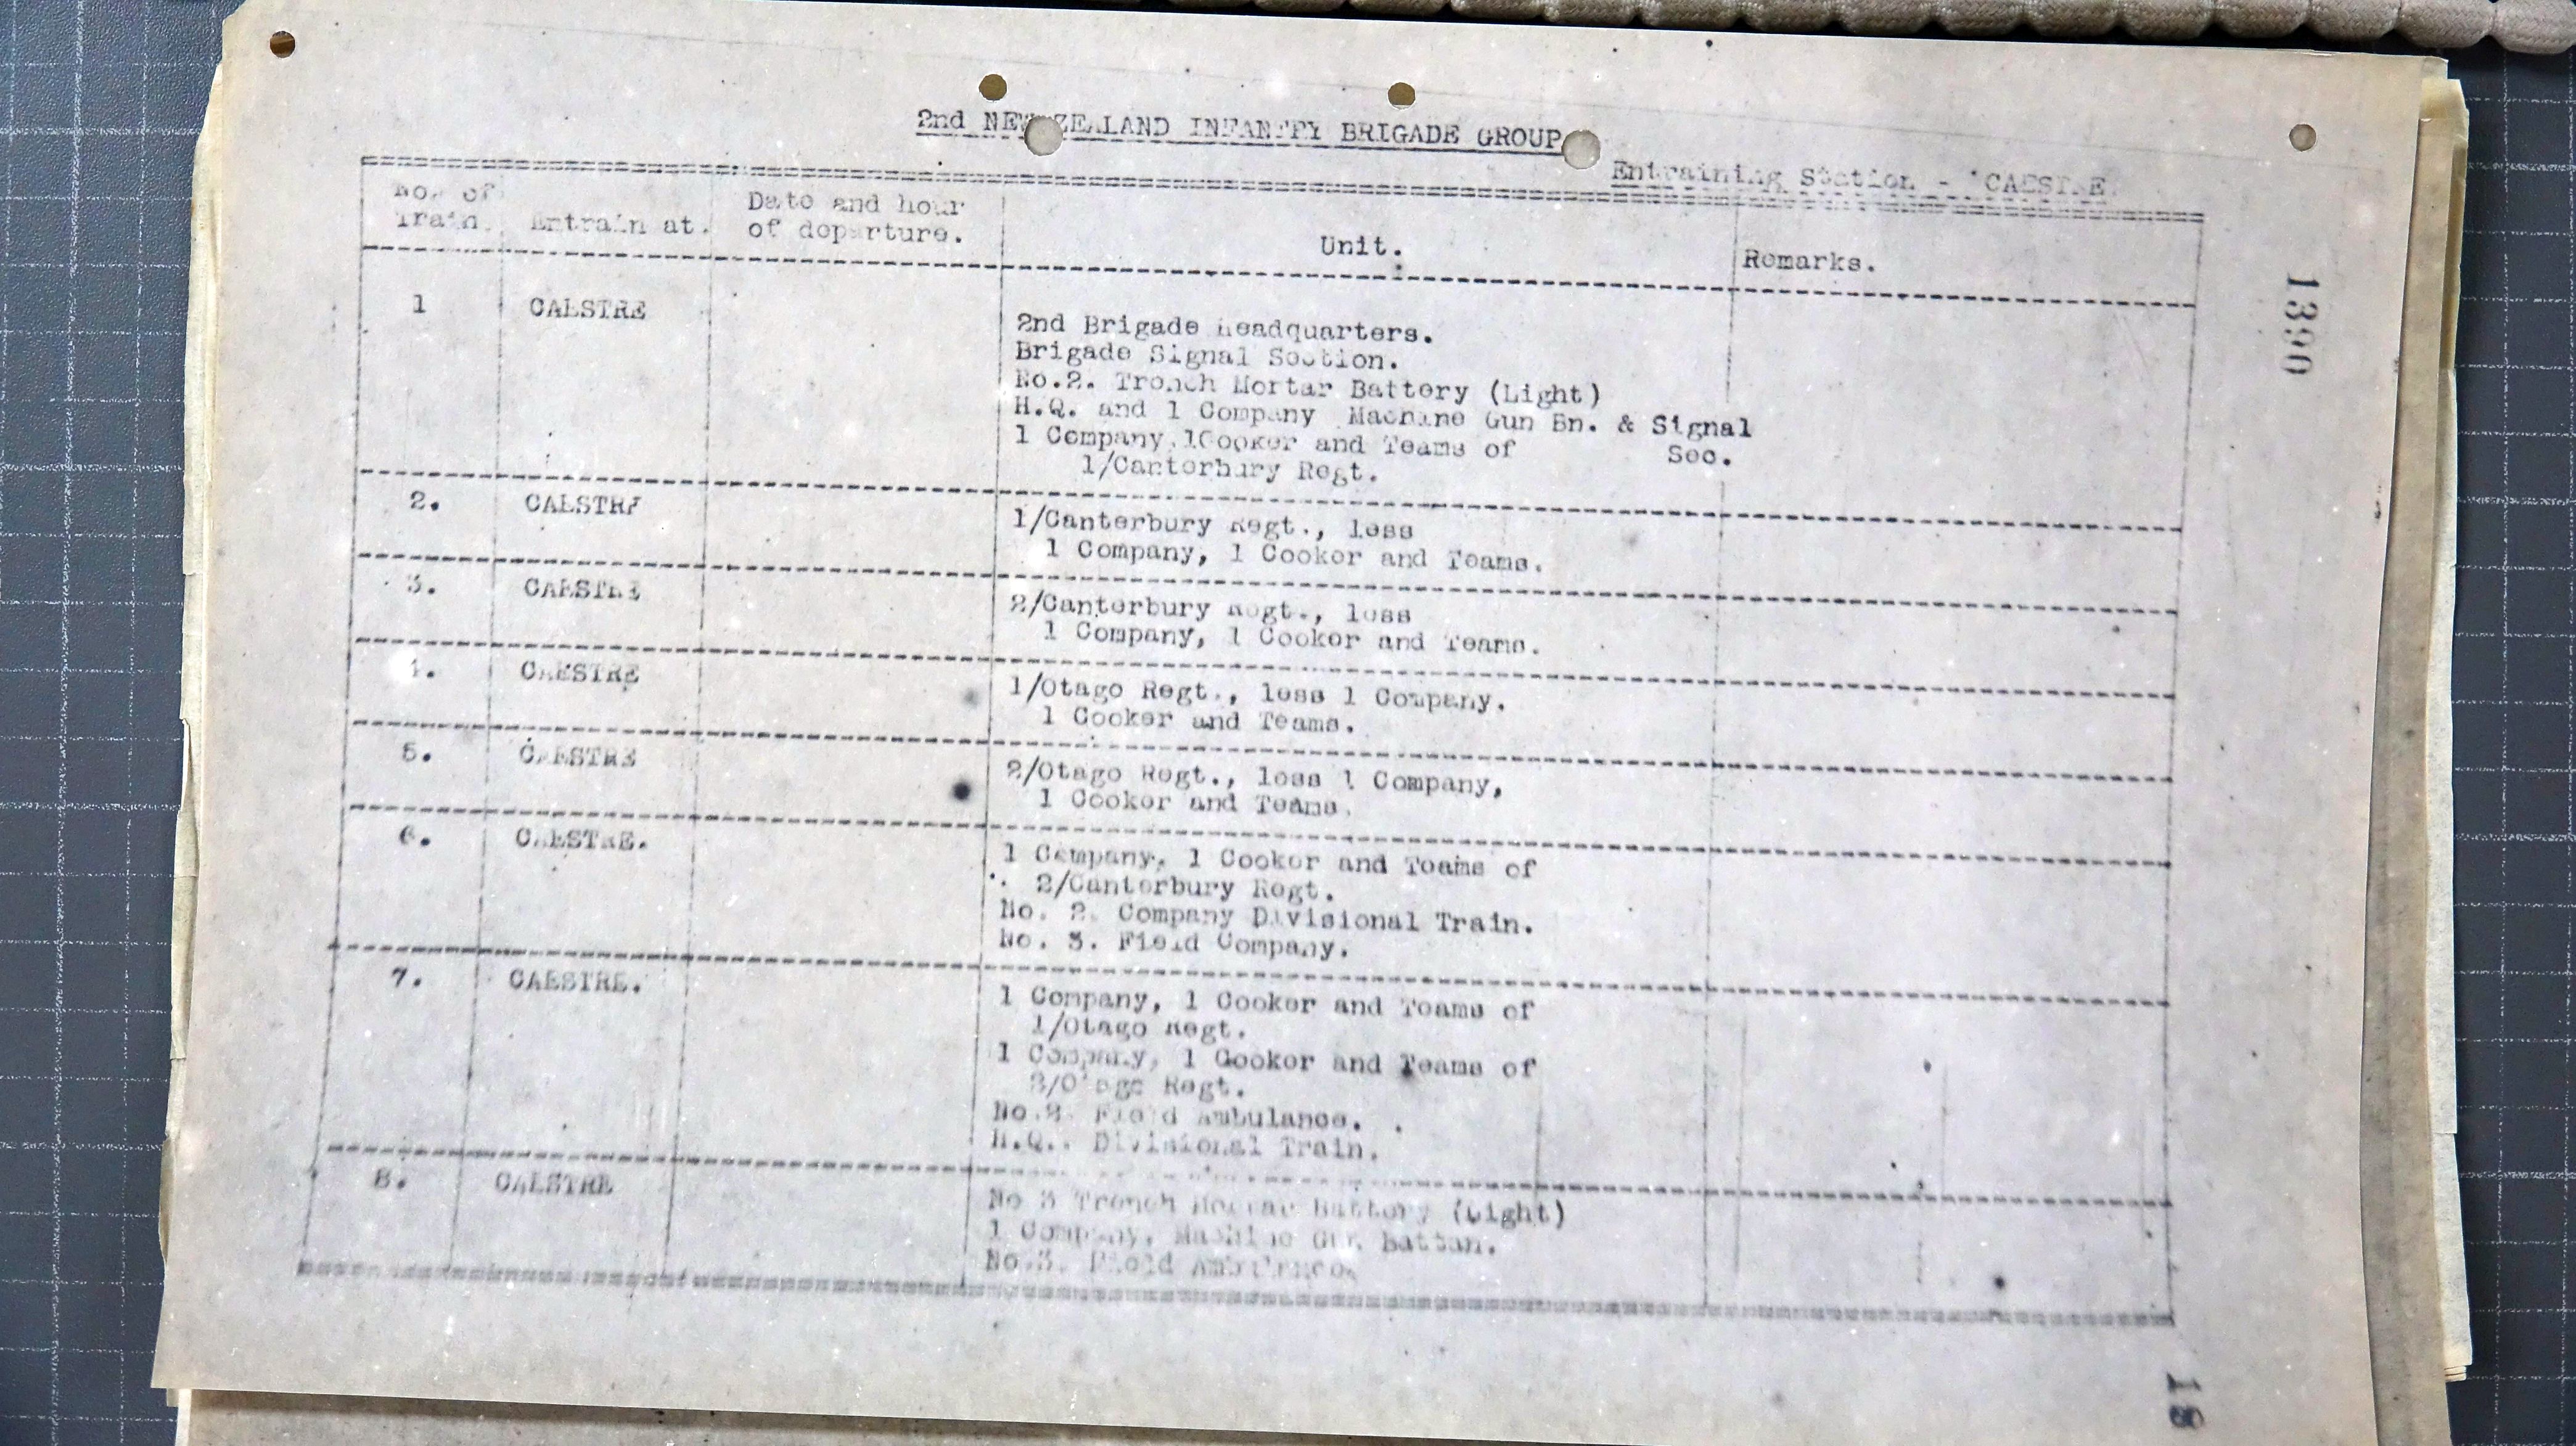 2nd NEW ZEALAND INFANTRY BRIGADE GROUP
Entraining Station - CAESTRE
No. of Train. Entrain at. Date and hour of departure. Unit. Remarks.
1390
1 CAESTRE
2nd Brigade Headquarters.
Brigade Signal Section.
No.2. Trench Mortar Battery (Light)
H.Q. and 1 Company Machine Gun Bn. & Signal
1 Company, 1 Cooker and Teams of Sec.
1/Canterbury Regt.
2. CAESTRE
1/Canterbury Regt., less
1 Company, 1 Cooker and Teams.
3. CAESTRE
2/Canterbury Regt., less
1 Company, 1 Cooker and Teams.
4. CAESTRE
1/Otago Regt., less 1 Company.
1 Cooker and Teams.
5. CAESTRE
2/Otago Regt., less 1 Company,
1 Cooker and Teams.
6. CAESTRE.
1 Company, 1 Cooker and Teams of
2/Canterbury Regt.
No. 2. Company Divisional Train.
No. 3. Field Company.
7. CAESTRE.
1 Company, 1 Cooker and Teams of
1/Otago Regt.
1 Company, 1 Cooker and Teams of
2/Otago Regt.
No.2. Field Ambulance.
H.Q.. Divisional Train.
8. CAESTRE
No 3 Trench Mortar Battery (Light)
1 Company, Machine Gun Battan.
No.3. Field Ambulance.